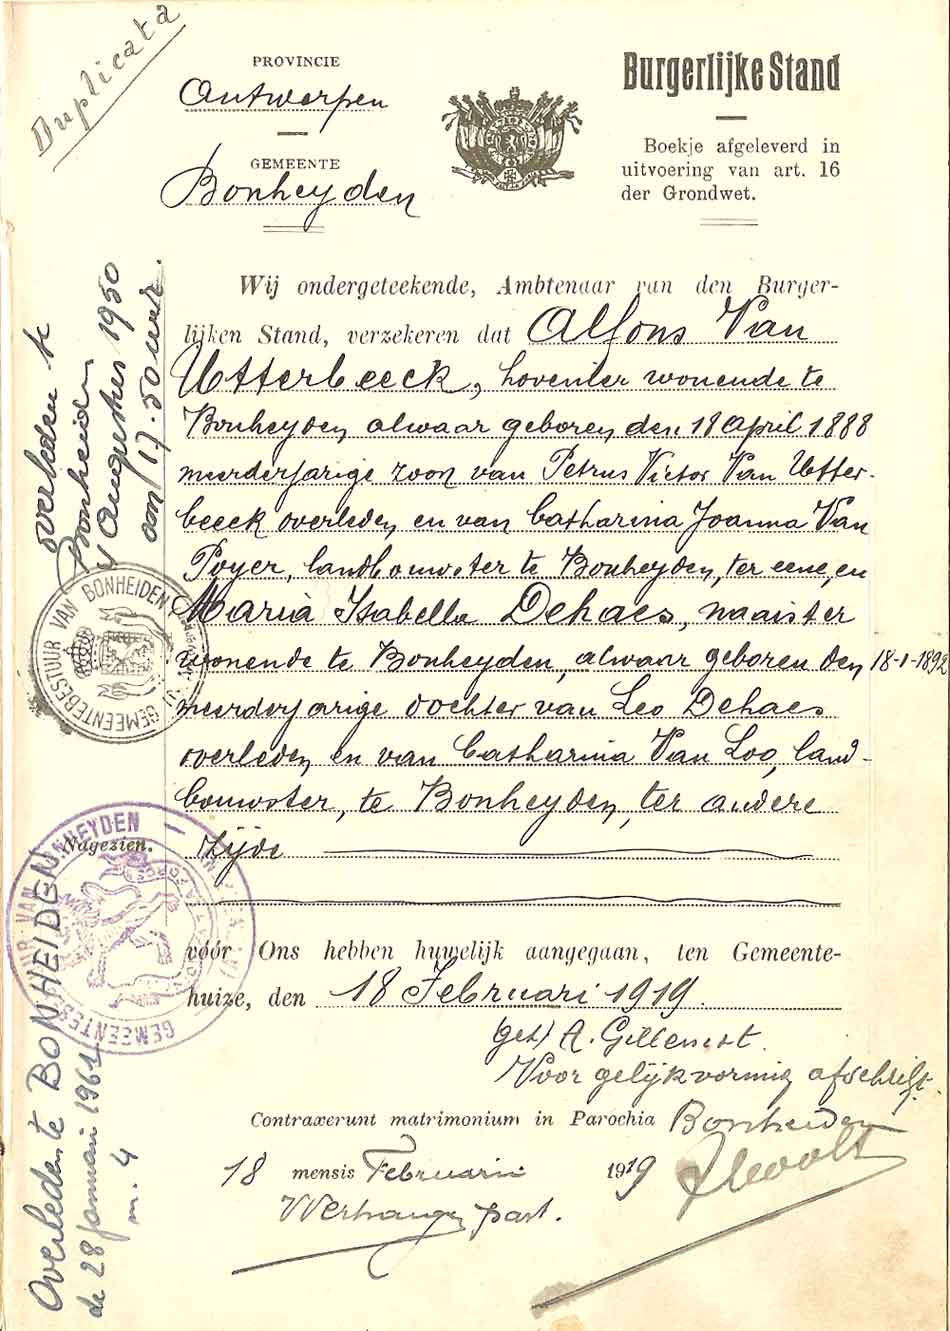 Duplicata
PROVINCIE
Antwerpen
GEMEENTE
Bonheyden
Burgerlijke Stand
Boekje afgeleverd in
uitvoering van art. 16
der Grondwet.
Wij ondergeteekende, Ambtenaar van den Burger-
lijken Stand, verzekeren dat Alfons Van
Utterbeeck, hovenier wonende te
Bonheyden alwaar geboren den 18 April 1888
meerderjarige zoon van Petrus Victor Van Utter-
beeck overleden en van Catharina Joanna Van
Poyer, landbouwster te Bonheyden, ter eene, en
Maria Isabella Dehaes, naaister
wonende te Bonheyden, alwaar geboren den 18-1-1892
meerderjarige dochter van Leo Dehaes
overleden en van Catharina Van Loo, land-
bouwster, te Bonheyden, ter andere
zijde
vóór Ons hebben huwelijk aangegaan, ten Gemeente-
huize, den 18 Februari 1919.
(get) A.
Voor gelijkvormig afschrift.
Contraxerunt matrimonium in Parochia Bonheiden
18 mensis Februarii 1919
past.
overleden te
Bonheiden
Augustus 1950
om 17.50 uur.
GEMEENTEBESTUUR VAN BONHEIDEN
Nagezien.
GEMEENTEBESTUUR VAN BONHEYDEN
Overleden te BONHEIDEN
de 28 januari 1961
n. 4